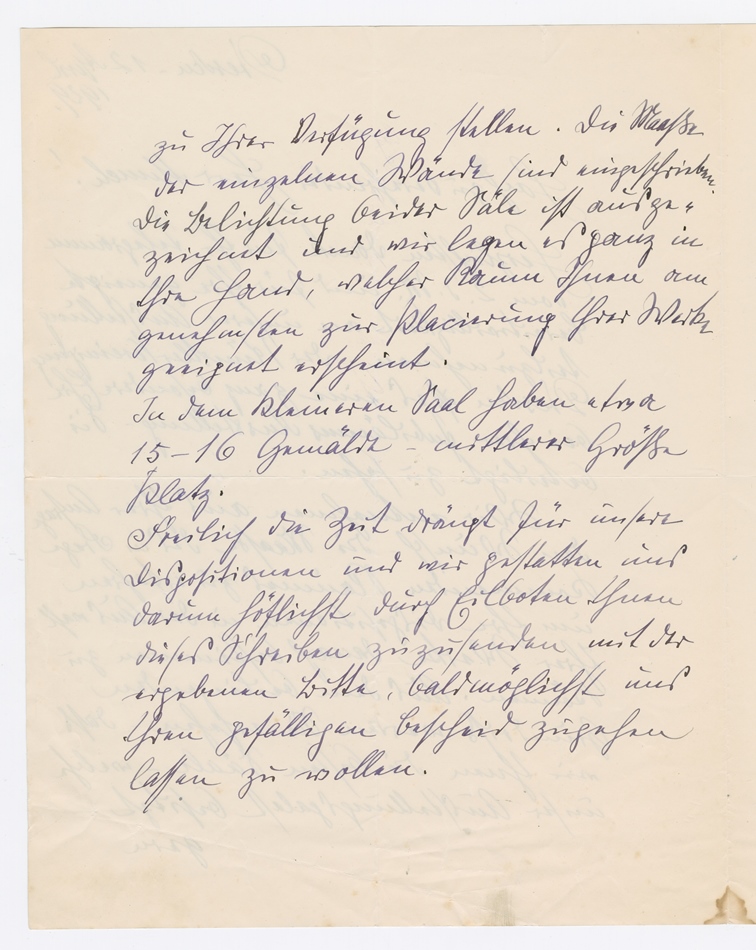 zu Ihrer Verfügung stellen. Die Maaße
der einzelnen Wände sind eingeschrieben.
Die Belichtung beider Säle ist ausge-
zeichnet und wir legen es ganz in
Ihre Hand, welcher Raum Ihnen am
genehmsten zur Placierung Ihrer Werke
geeignet erscheint.
In dem kleineren Saal haben etwa
15-16 Gemälde - mittlerer Größe
Platz.
Freilich die Zeit drängt für unsere
Dispositionen und wir gestatten uns
darum höflichst durch Eilboten Ihnen
dieses Schreiben zuzusenden mit der
ergebenen Bitte, baldmöglichst uns
Ihren gefälligen Bescheid zugehen
lassen zu wollen.